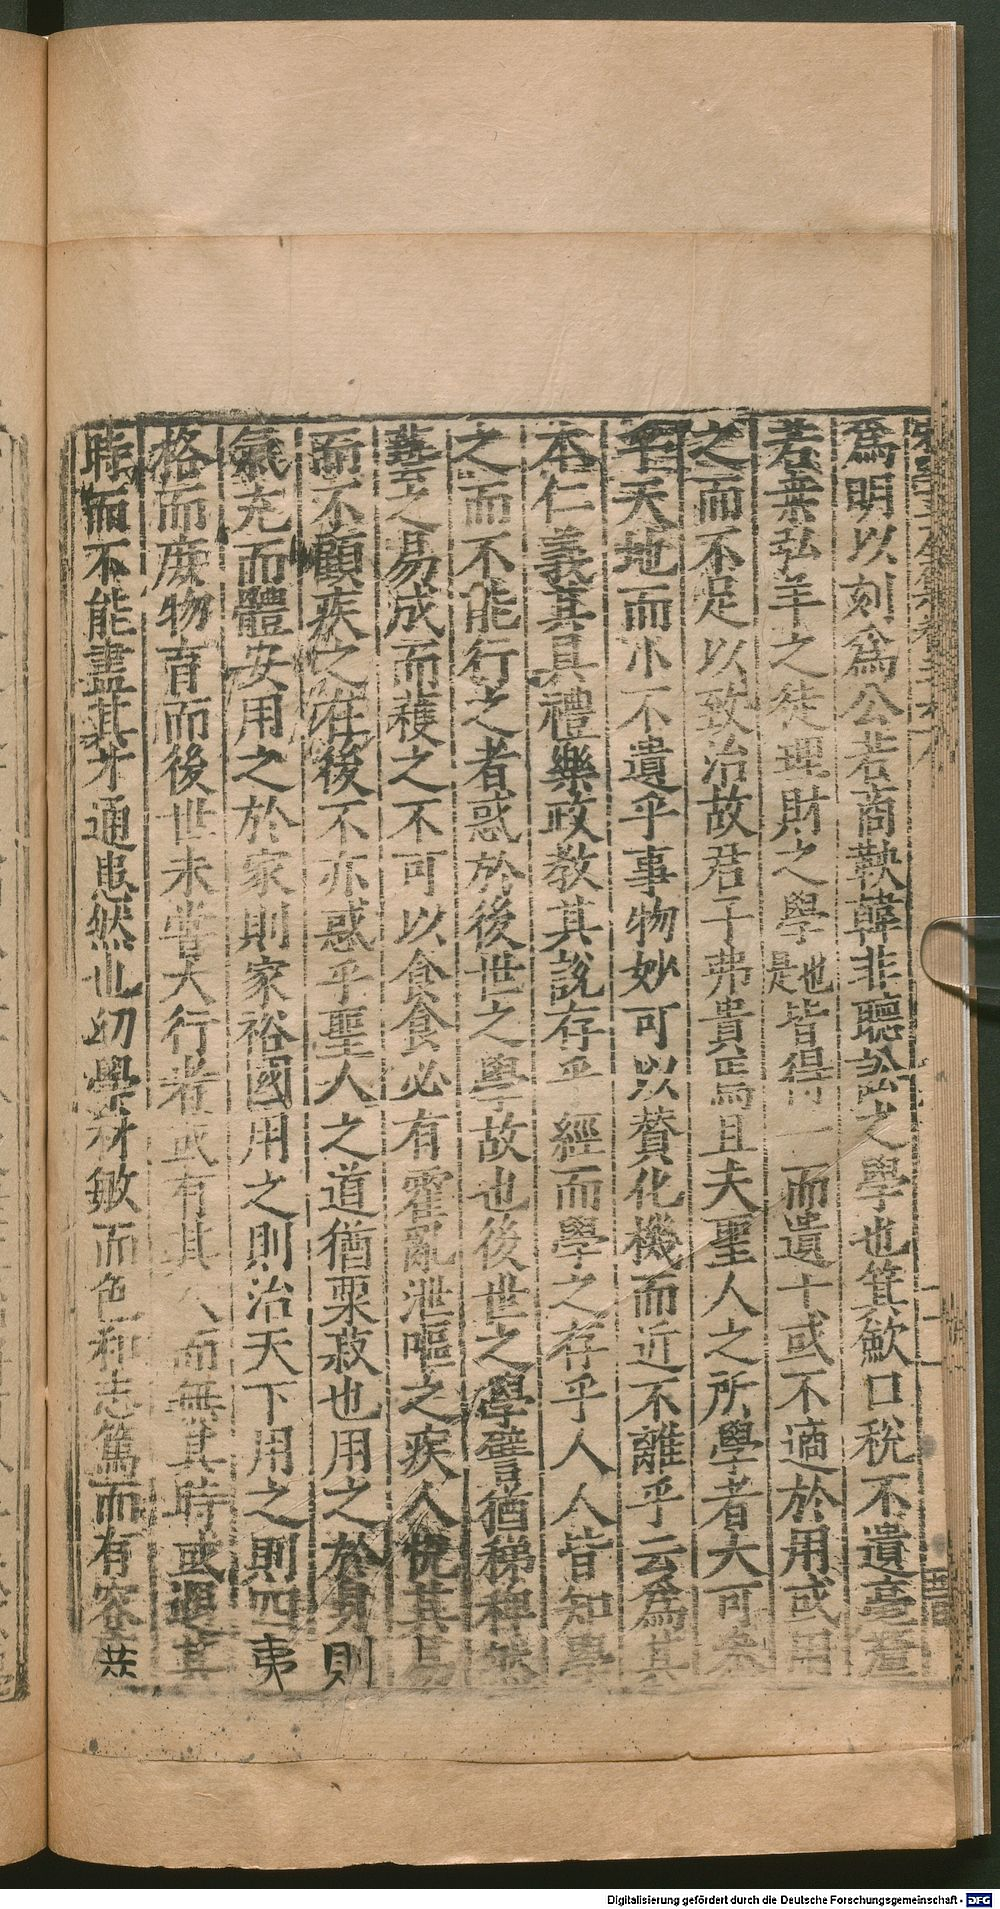 爲明以刻爲公若商鞅韓非聽訟之學也箕歛口稅不遺毫釐
若桒弘羊之徒理財之學是也皆得一而遺十或不適於用或用
之而不足以致治故君子弗貴焉且夫聖人之所學者大可參
乎天地而小不遺乎事物妙可以贊化機而近不離乎云爲其
本仁義其具禮樂政敎其說存乎經而學之存乎人人皆知學
之而不能行之者惑於後世之學故也後世之學譬猶稊稗然
藝之易成而穫之不可以食食必有霍亂泄嘔之疾人恱其易
而不顧疾之在後不亦惑乎聖人之道猶粟菽也用之於身則
氣充而體安用之於家則家裕國用之則治天下用之則四夷
格而庶物育而後世未嘗大行者或有其人而無其時或遇其
時而不能盡其才通患然也㓜學新敏而色和志篤而有容
Digitalisierung gefördert durch die Deutsche Forschungsgemeinschaft - DFG